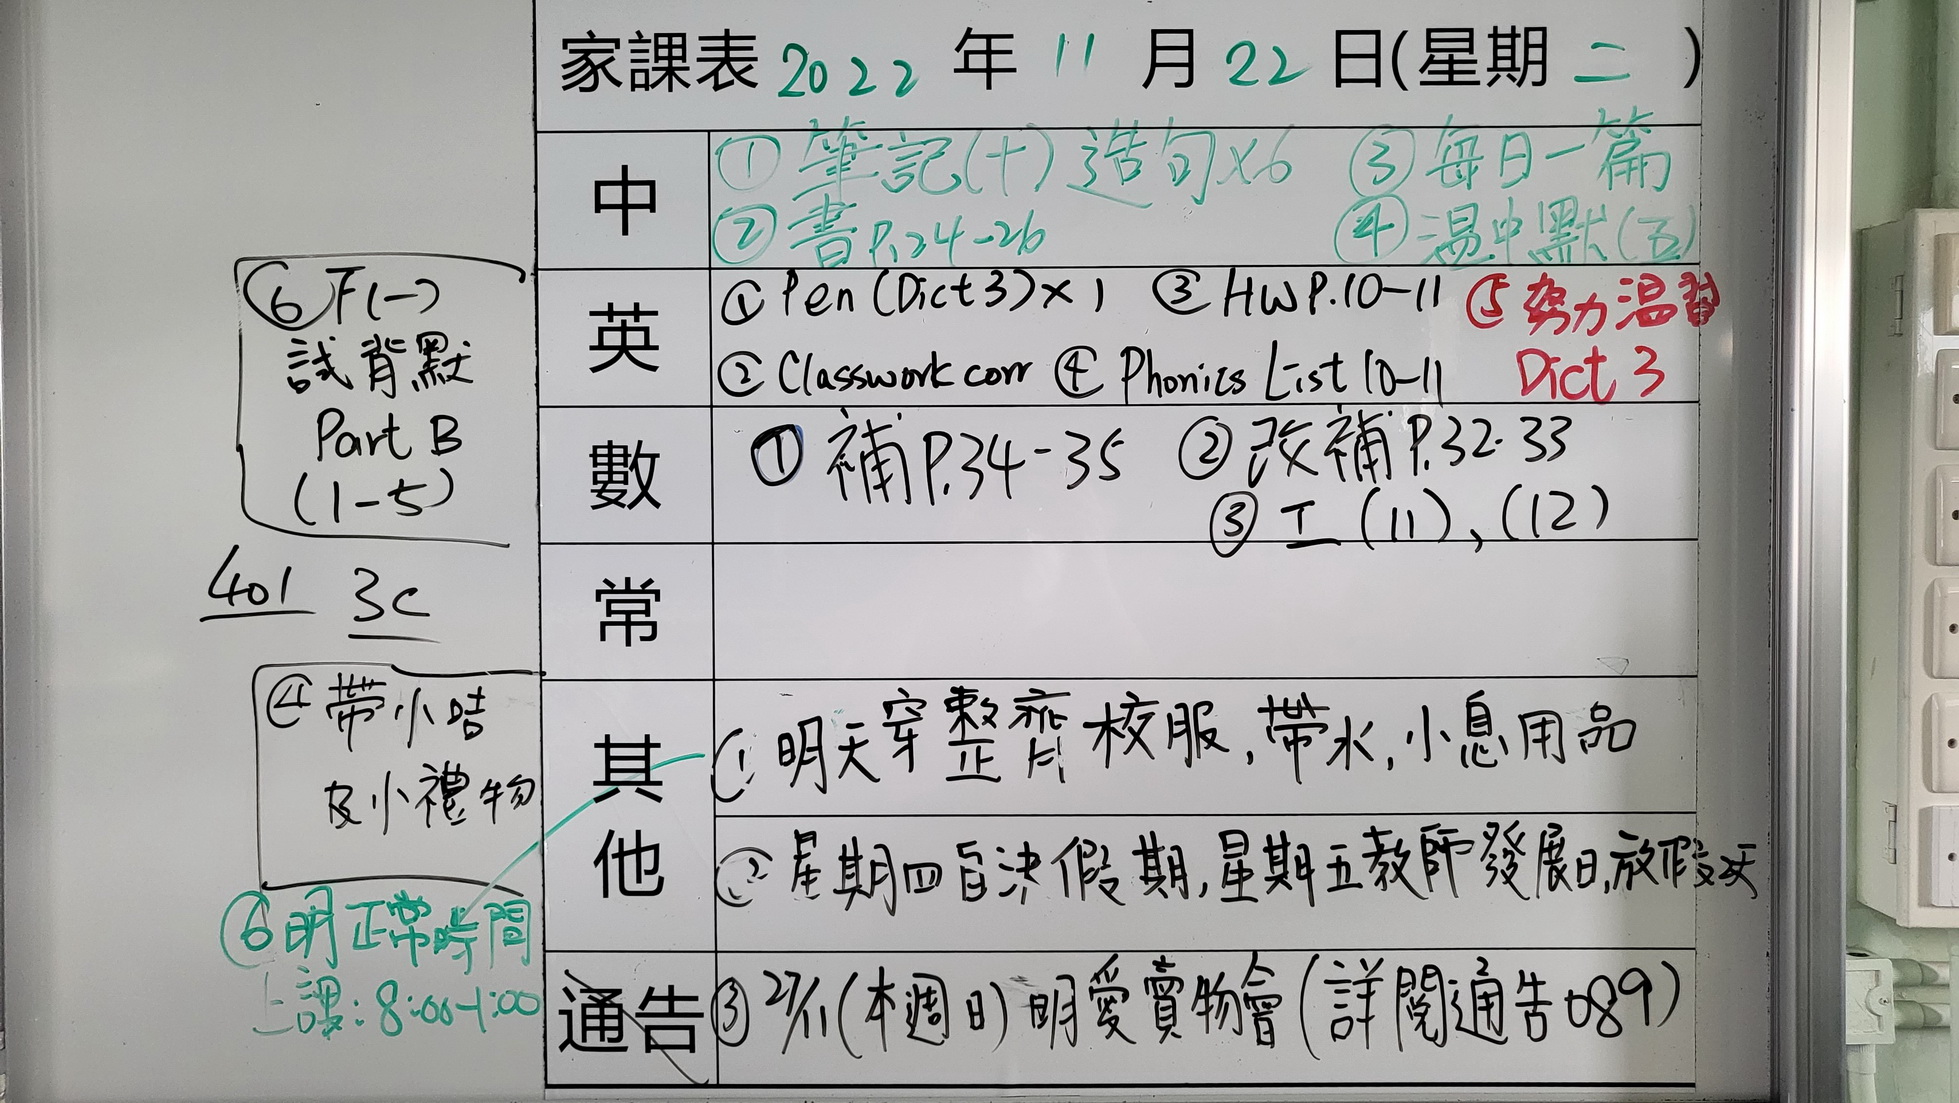 家課表 2022 年 11 月 22 日(星期 二 )
中
① 筆記(十)造句x6 ③ 每日一篇
② 書P.24-26 ④ 温中默(五)
英
① Pen (Dict 3) x 1 ③ HW P.10-11 ⑤ 努力温習
② Classwork corr ④ Phonics List 10-11 Dict 3
數
① 補P.34-35 ② 改補P.32-33
③ 工 (11)、(12)
常
其他
① 明天穿整齊校服,帶水,小息用品
② 星期四自決假期,星期五教師發展日,放假2天
通告
③ 27/11(本週日)明愛賣物會(詳閱通告089)
⑥ F(一)
試背默
Part B
(1-5)
401 3C
④ 帶小咭
及小禮物
⑥ 明正常時間
上課:8:00-1:00